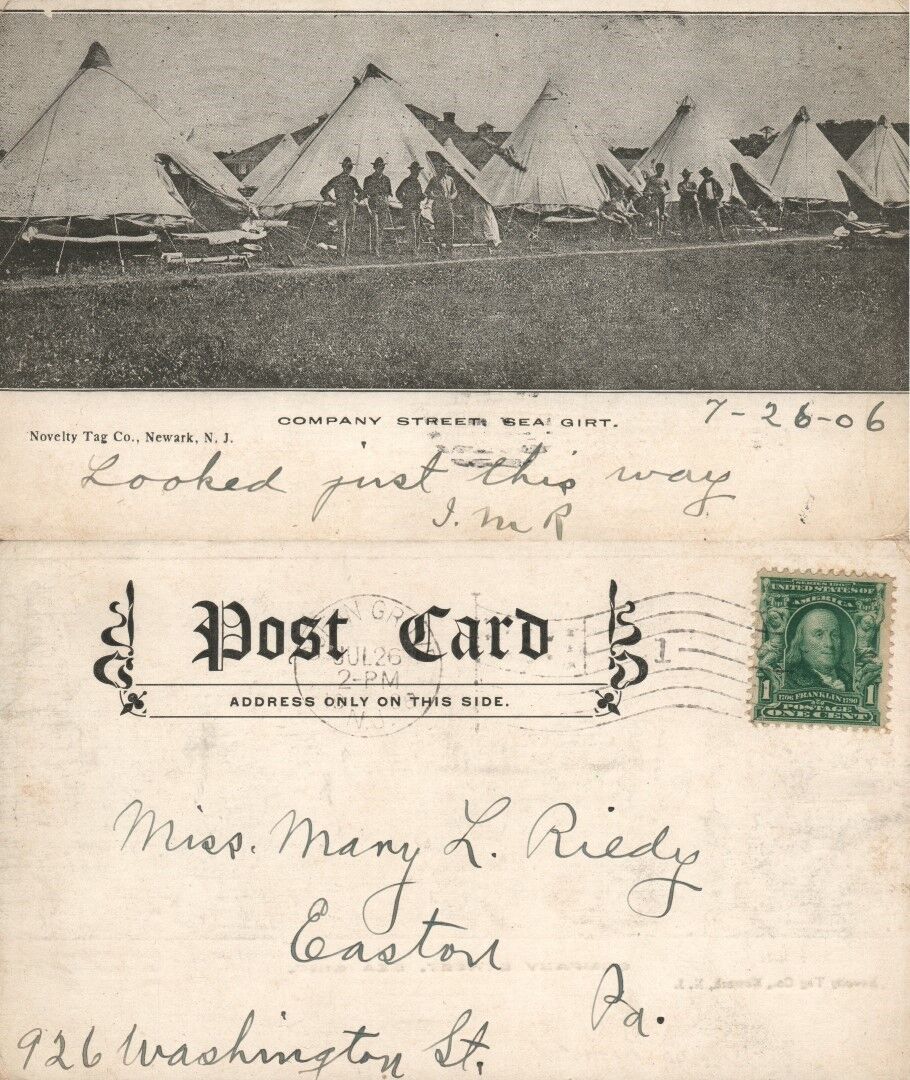 COMPANY STREET, SEA GIRT.
7-26-06
Novelty Tag Co., Newark, N. J.
Looked just this way
I. M R
Post Card
ADDRESS ONLY ON THIS SIDE.
JUL 26
2-PM
N.J.
1
UNITED STATES OF
AMERICA
1 1
FRANKLIN
POSTAGE
ONE CENT
Miss. Mary L. Riedy
Easton
Pa.
926 Washington St.